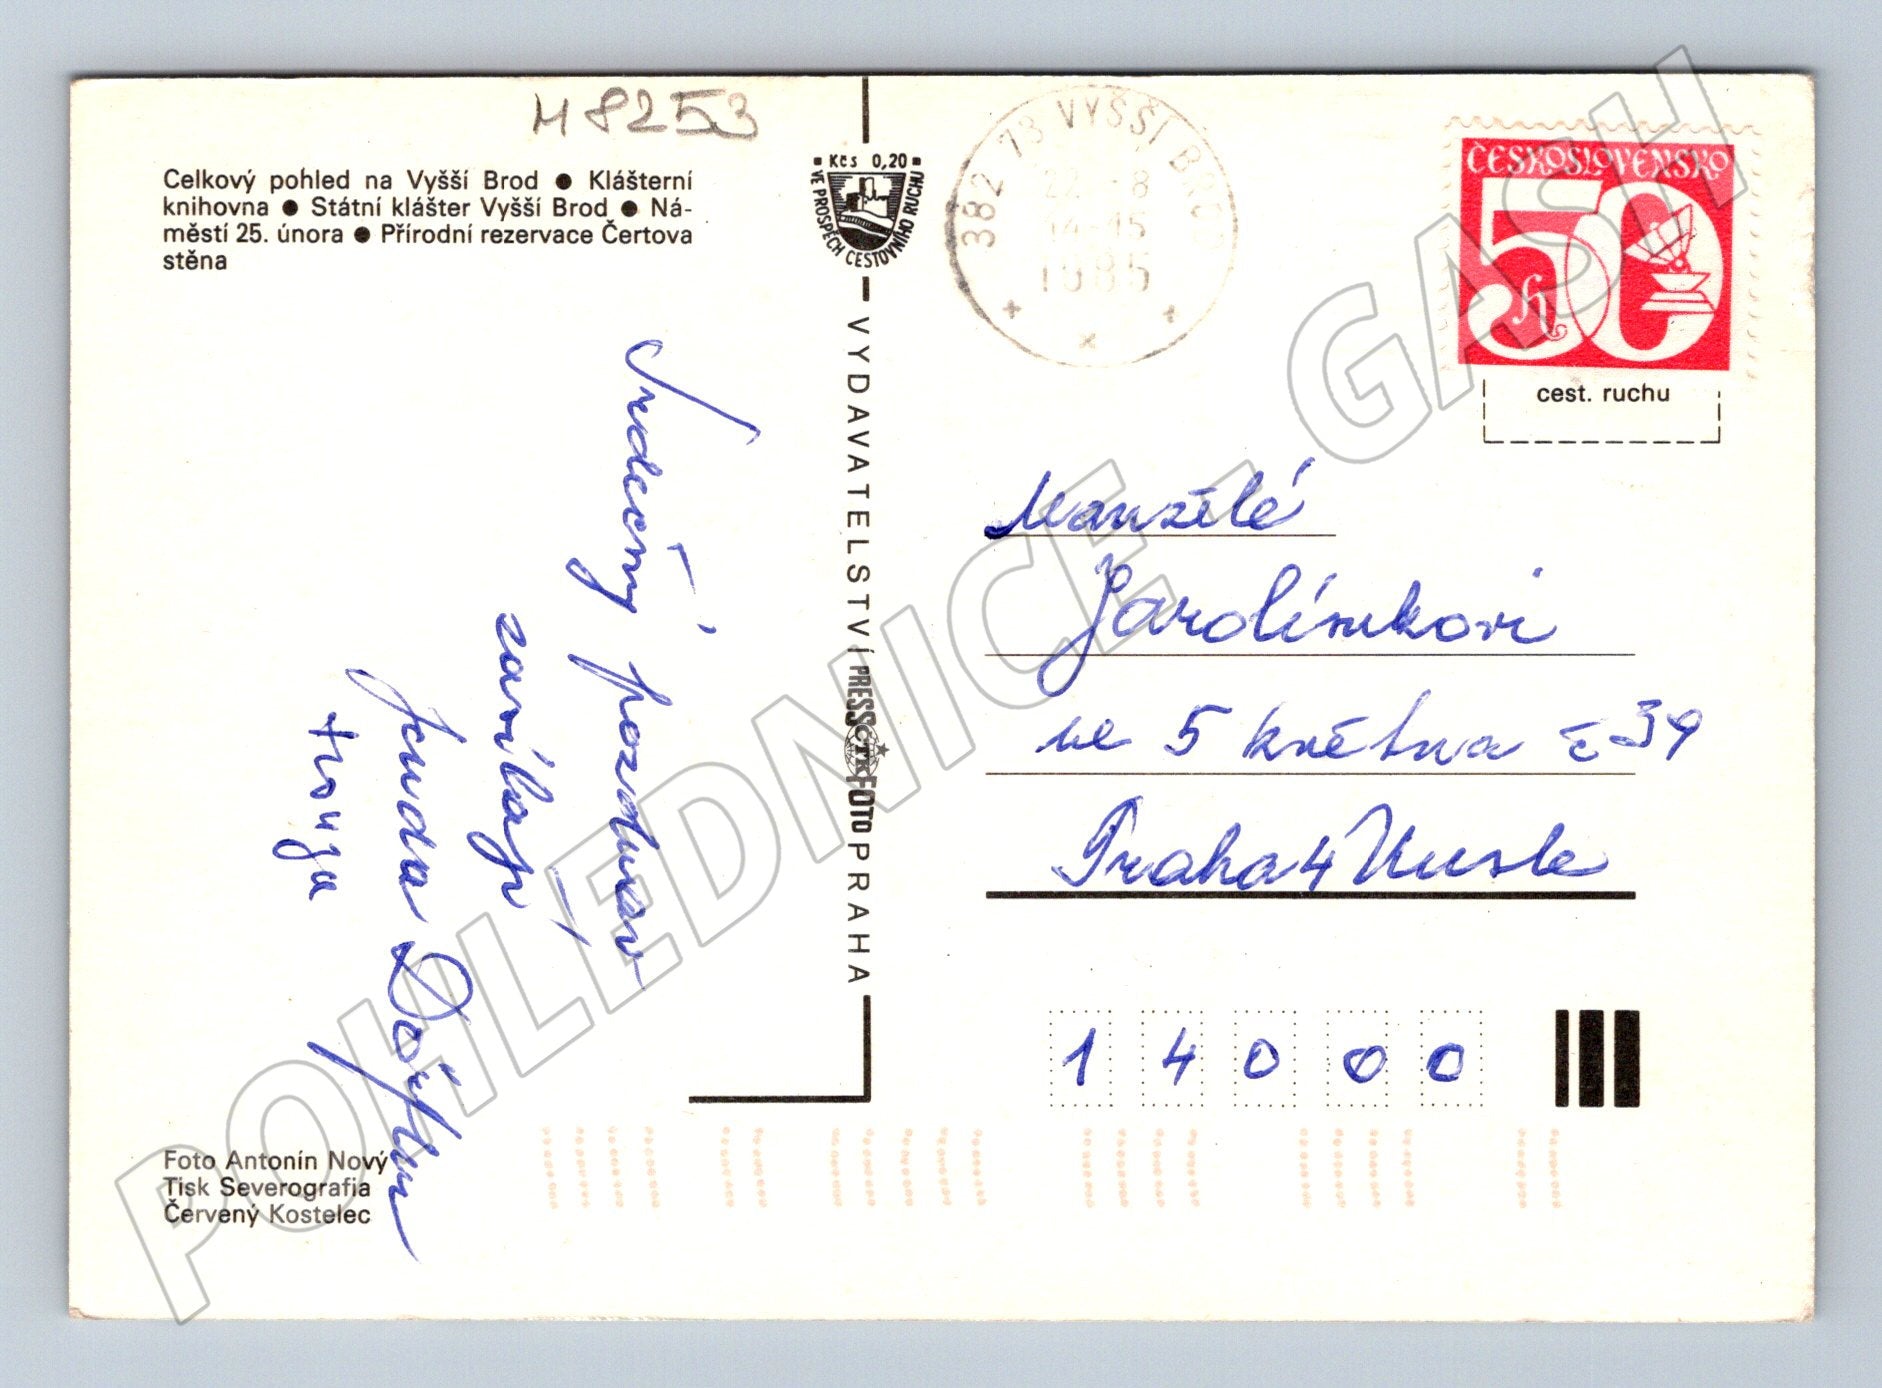 M 8253
Celkový pohled na Vyšší Brod ● Klášterní
knihovna ● Státní klášter Vyšší Brod ● Ná-
městí 25. února ● Přírodní rezervace Čertova
stěna
Kčs 0,20
VE PROSPĚCH CESTOVNÍHO RUCHU
VYDAVATELSTVÍ PRESSFOTO PRAHA
ČTK
382 73 VYŠŠÍ BROD
22. -8
14-15
1985
ČESKOSLOVENSKO
50 h
cest. ruchu
Srdečný pozdrav
zasílají
Jenda
Manželé
Jarolímkovi
ve 5 května č 39
Praha 4 Nusle
14000
Foto Antonín Nový
Tisk Severografia
Červený Kostelec
POHLEDNICE - GASH